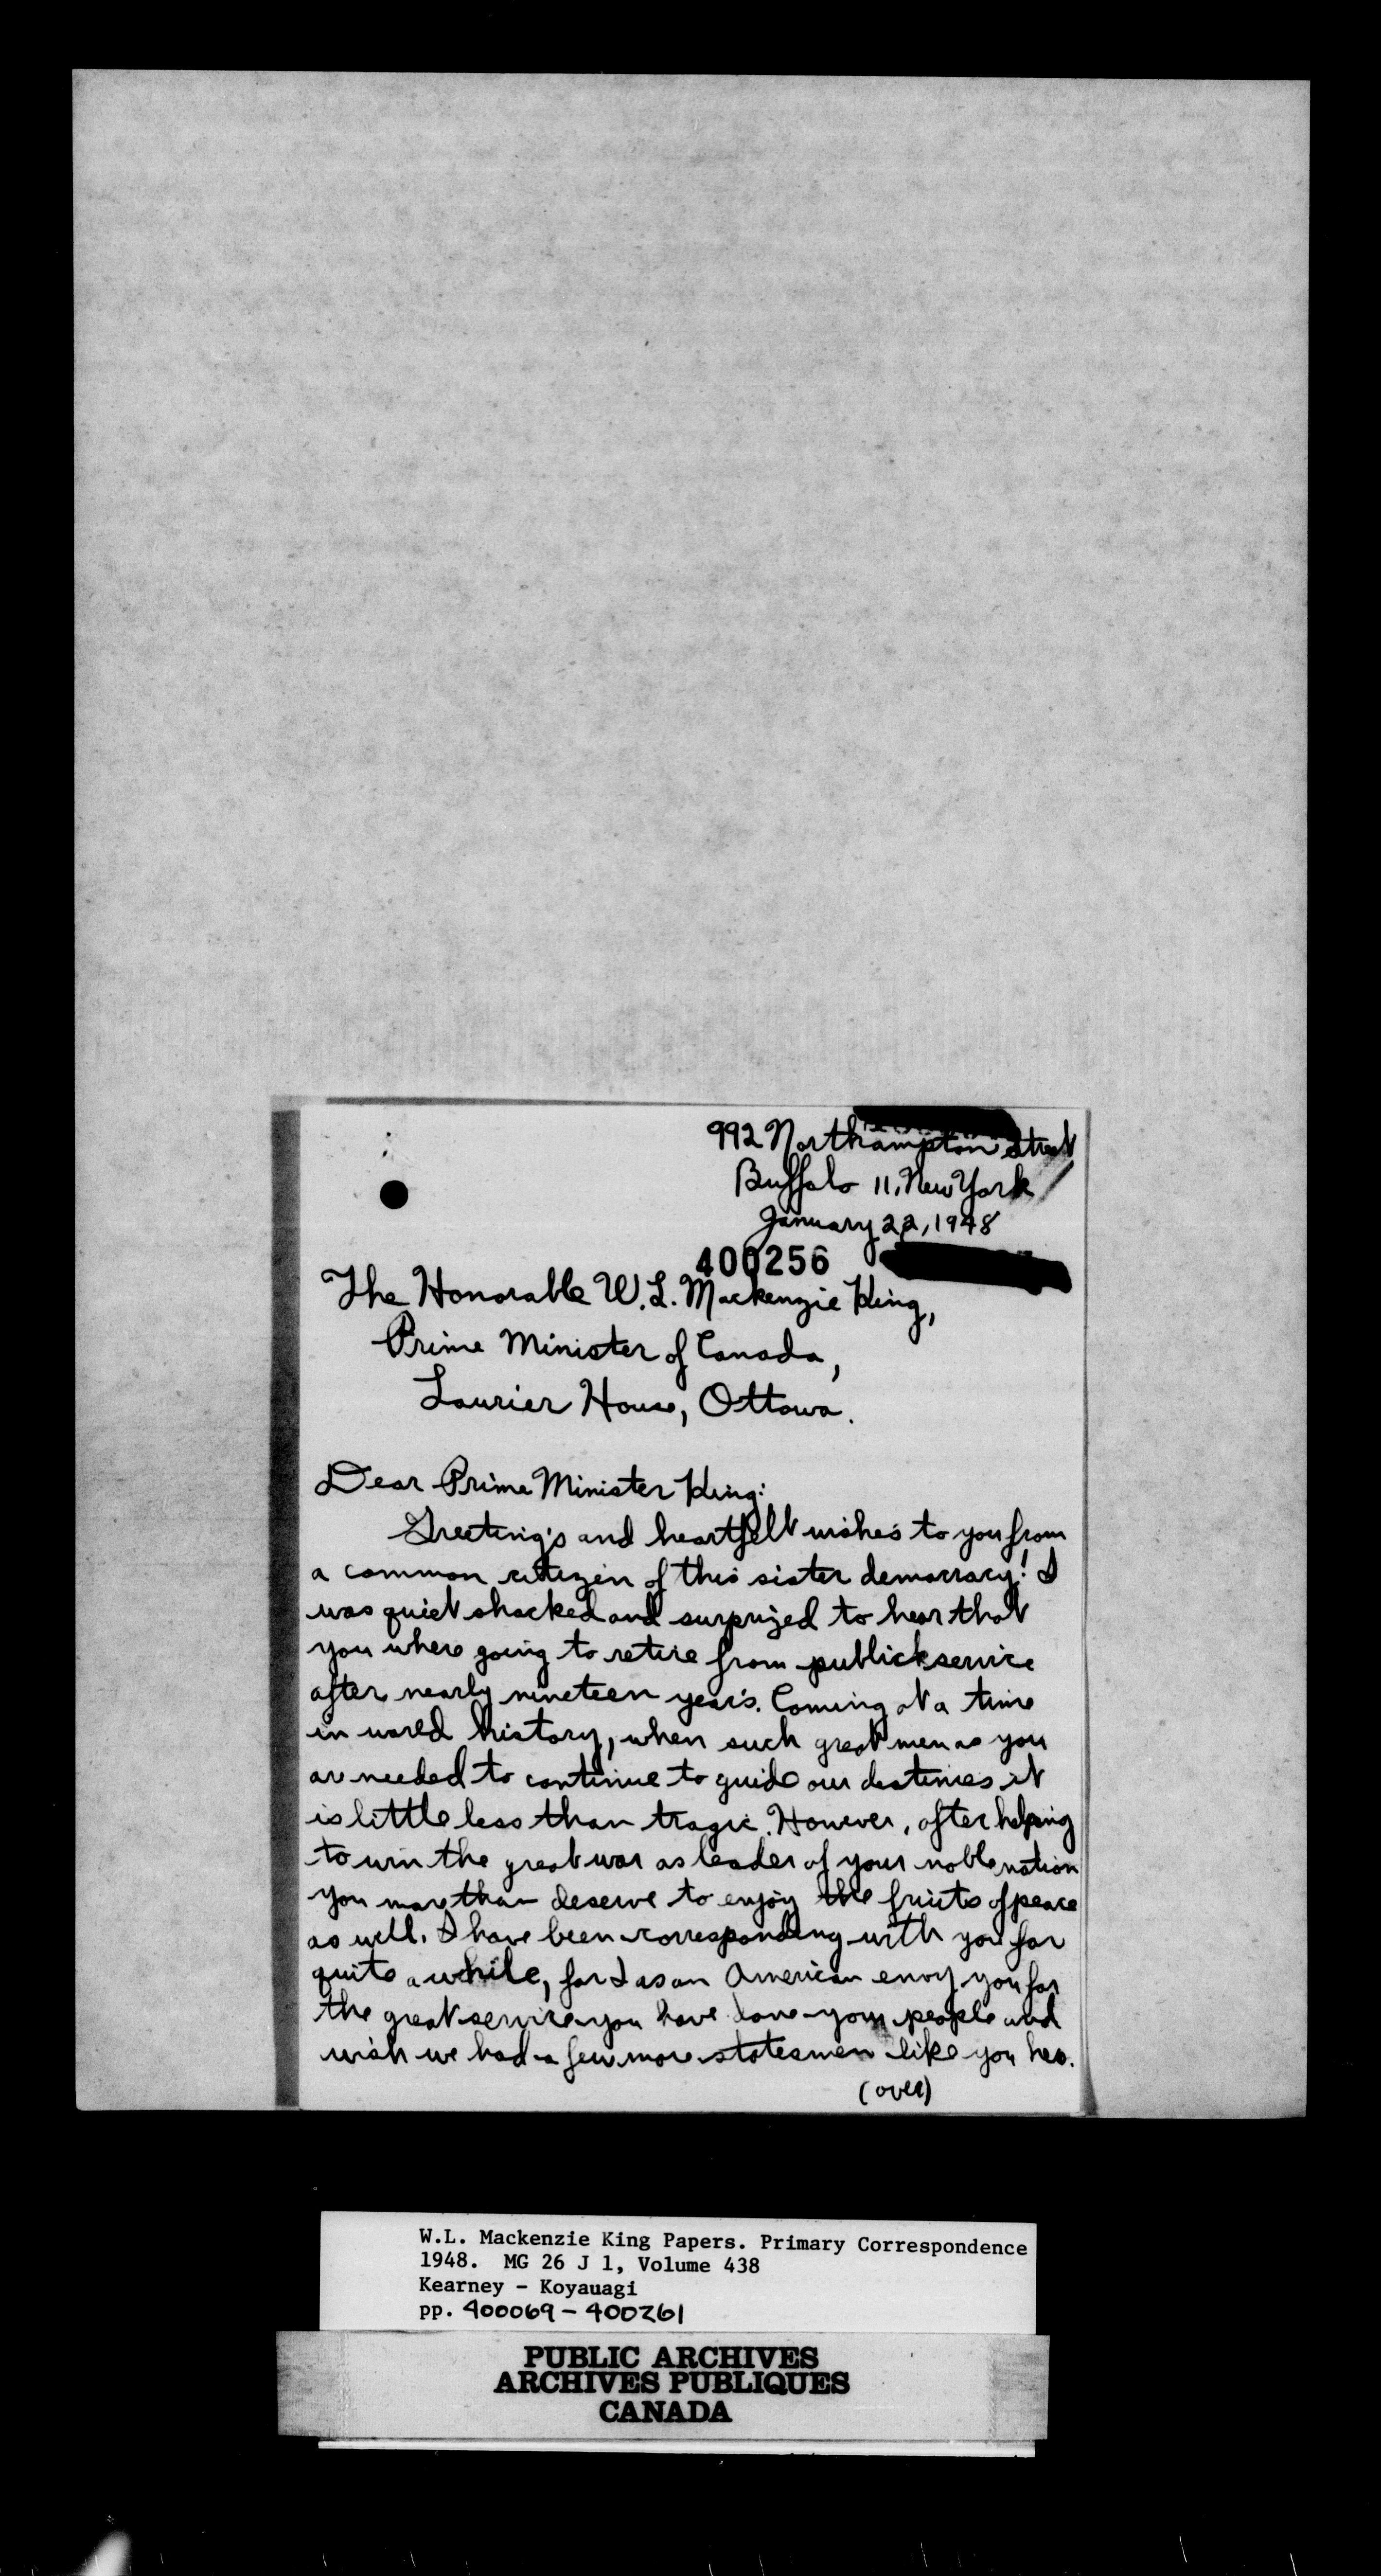 992 Northampton Street
Buffalo 11, New York
January 22, 1948
400256
The Honorable W. L. Mackenzie King,
Prime Minister of Canada,
Laurier House, Ottawa.
Dear Prime Minister King:
Greeting's and heartfelt wishes to you from
a common citizen of this sister democracy! I
was quiet shocked and surprized to hear that
you where going to retire from publick service
after nearly nineteen year's. Coming at a time
in world history, when such great men as you
are needed to continue to guide our destinies it
is little less than tragic. However, after helping
to win the great war as leader of your noble nation
you more than deserve to enjoy the fruits of peace
as well. I have been corresponding with you for
quite a while, for I as an American envy you for
the great service you have done your people and
wish we had a few more statesmen like you here.
(over)
W.L. Mackenzie King Papers. Primary Correspondence
1948. MG 26 J 1, Volume 438
Kearney - Koyauagi
pp. 400069-400261
PUBLIC ARCHIVES
ARCHIVES PUBLIQUES
CANADA